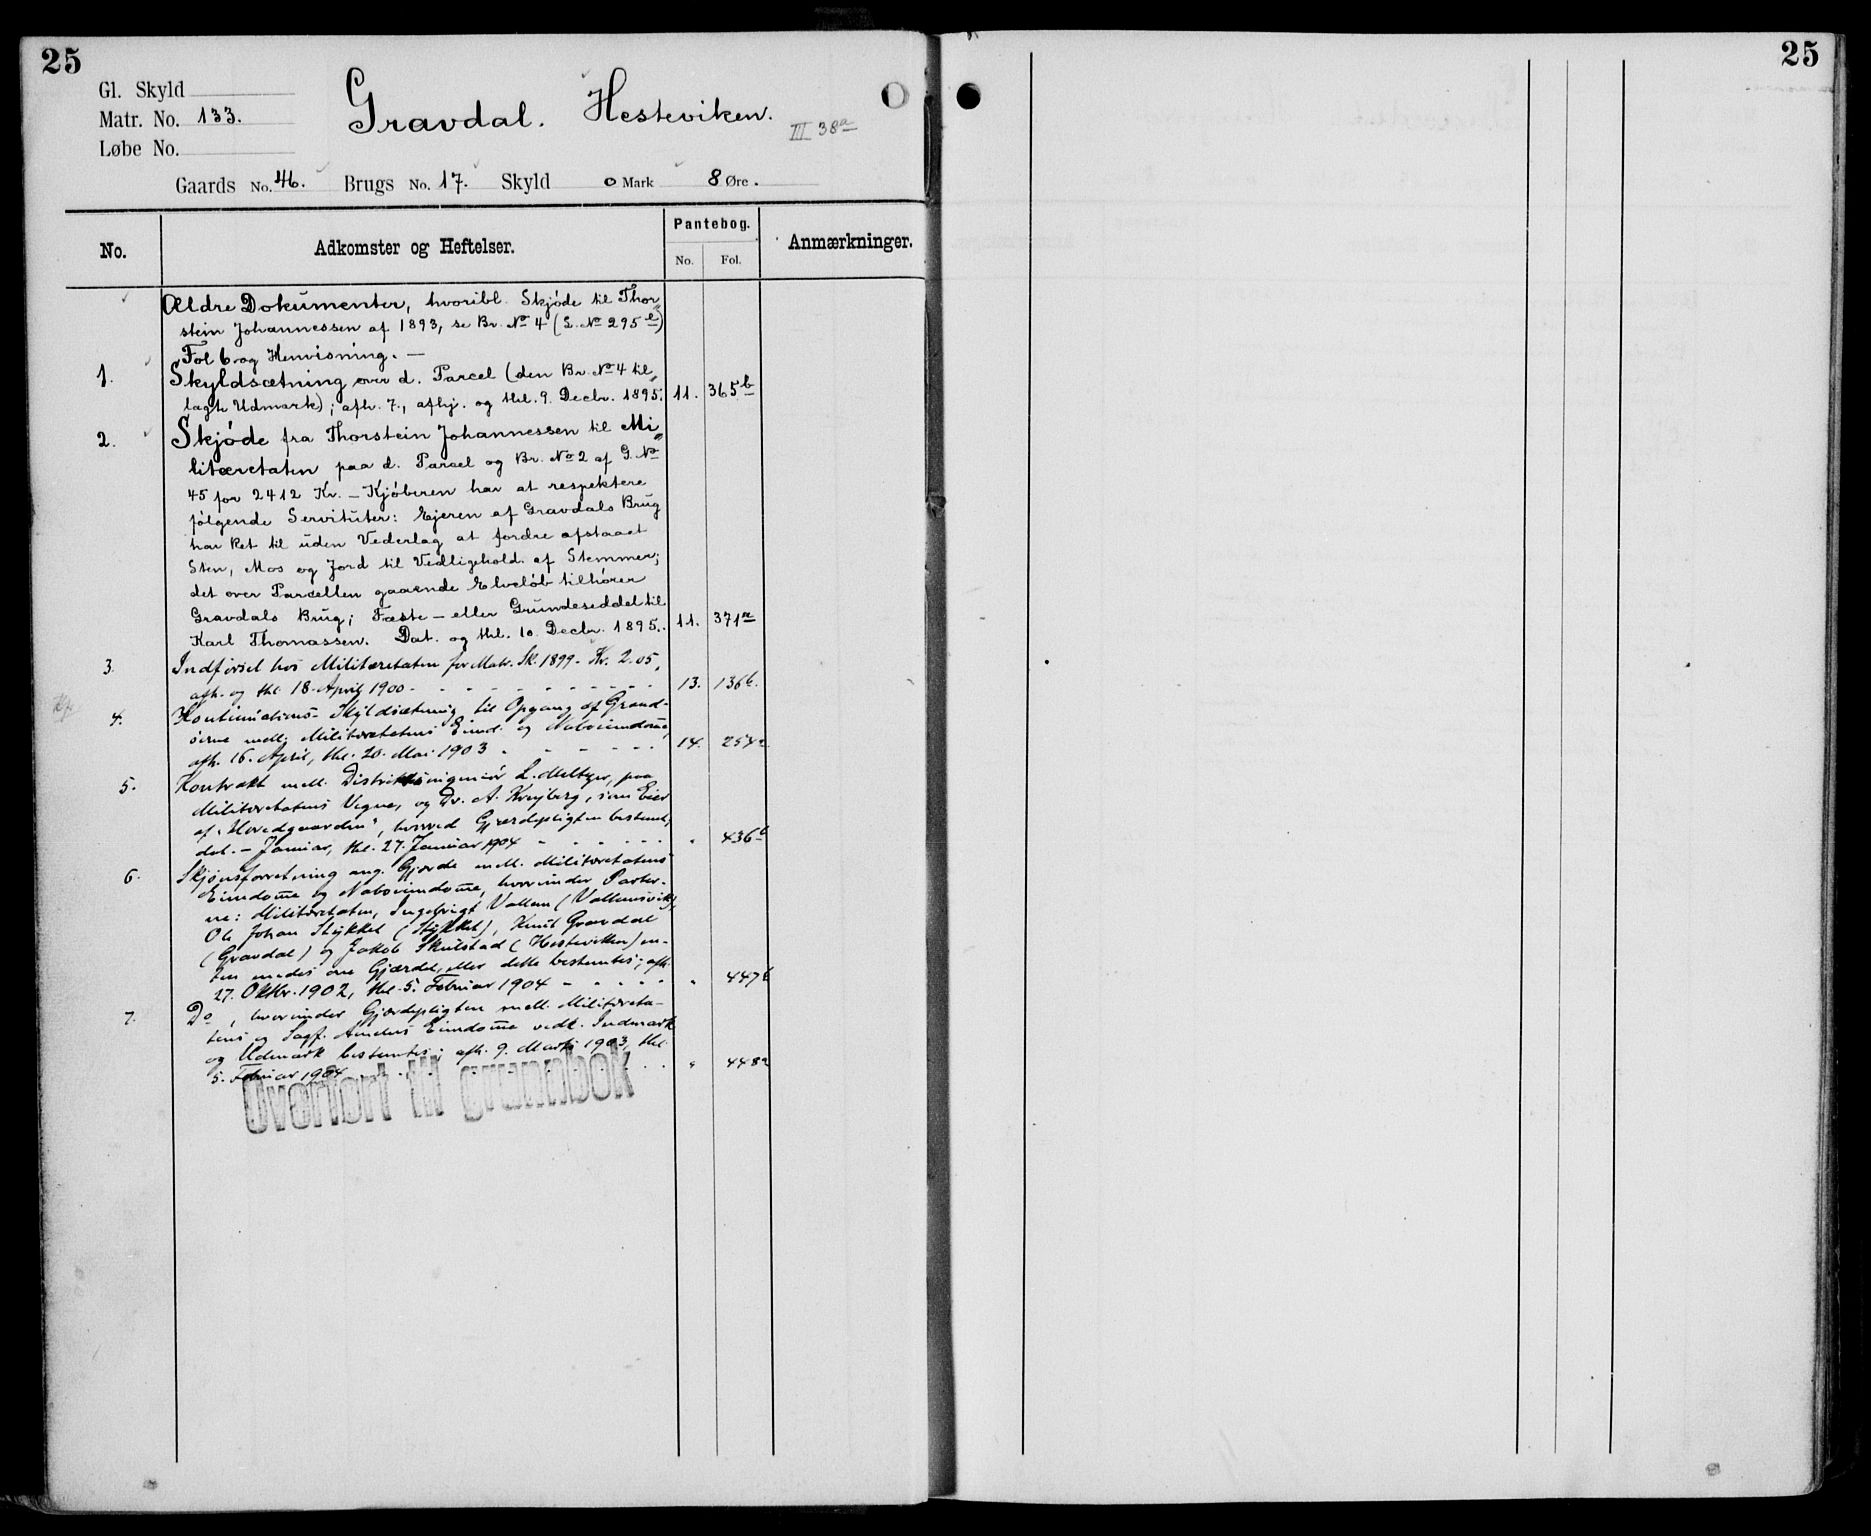 25
25
Gl. Skyld
Matr. No. 133.
Løbe No.
Gravdal. Hesteviken.
III 38a
Gaards No. 46. Brugs No. 17. Skyld 0 Mark 8 Øre.
No. Adkomster og Heftelser. Pantebog. Anmærkninger.
No. Fol.
Ældre Dokumenter, hvoribl. Skjøde til Thor-
stein Johannessen af 1893, se Br. No 4 (L. No 295e)
Fol 6 og Henvisning. —
1. Skyldsætning over d. Parcel (den Br. No 4 til
lagte Udmark); afh. 7., afhj. og thl. 9. Decbr. 1895. 11. 365b
2. Skjøde fra Thorstein Johannessen til Mi-
litæretaten paa d. Parcel og Br. No 2 af G. No
45 for 2412 Kr. — Kjøberen har at respektere
følgende Servituter: Ejeren af Gravdals Brug
har Ret til uden Vederlag at fordre afstaaet
Sten, Mos og Jord til Vedligehold. af Stemmer;
det over Parcellen gaaende Elveløb tilhører
Gravdals Brug; Fæste- eller Grundeseddel til
Karl Thomassen. Dat. og thl. 10. Decbr. 1895. 11. 371a
3. Indførsel hos Militæretaten for Matr. Sk. 1899 - Kr. 2.05,
afh. og thl. 18. April 1900 - 13. 136b.
4. Kontinuations-Skyldsætning til Opgang af Grænd-
serne mell. Militæretatens Eiend. og Naboeiendomme,
afh. 16. April, thl. 20. Mai 1903 14. 254a
5. Kontrakt mell. Distriktsingeniør L. Meltzer, paa
Militæretatens Vegne, og Dr. A. Kreyberg, som Eier
af "Hovedgaarden", hvorved Gjærdepligten bestemt,
dat. - Januar, thl. 27. Januar 1904 " 436b
6. Skjønsforretning ang. Gjærde mell. Militæretatens
Eiendomme og Naboeiendomme, hvorunder Parter-
ne: Militæretaten, Ingebrigt Vallem (Vallemsvik),
Ole Johan Stykket (Stykket), Knut Gravdal
(Gravdal) og Jakob Skulstad (Hesteviken) en-
ten enedes om Gjærdet, eller dette bestemtes; afh.
27. Oktbr. 1902, thl. 5. Februar 1904 " 447b
7. Do, hvorunder Gjærdepligten mell. Militæreta-
tens og Sagf. Amelns Eiendomme vedk. Indmark
og Udmark bestemtes; afh. 9. Marts 1903, thl.
5. Februar 1904 " 448a
Overført til grunnbok